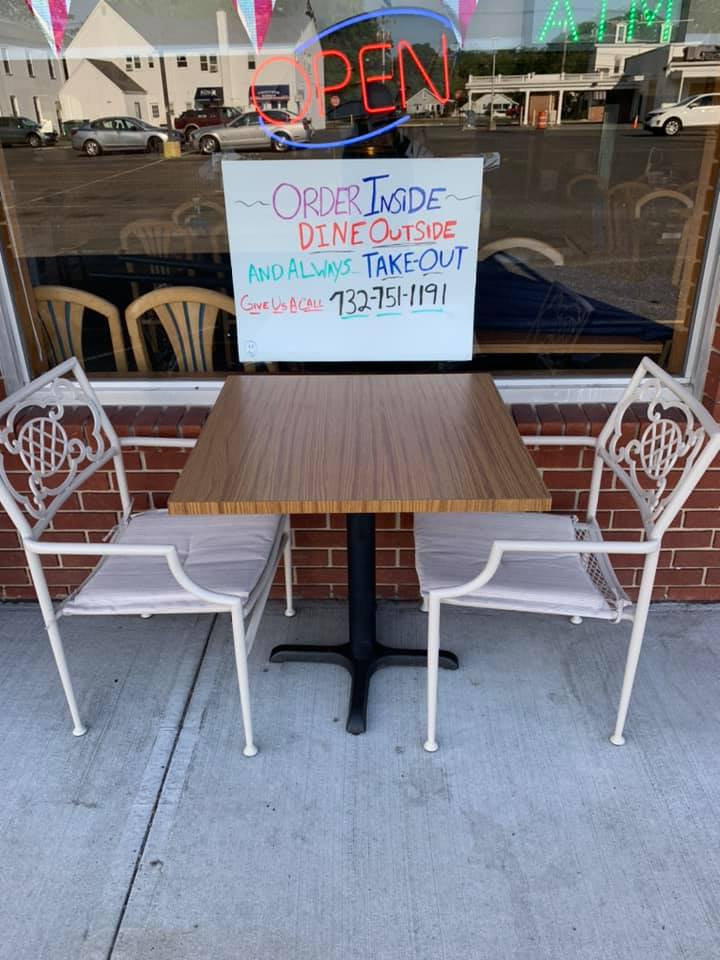 OPEN
ATM
ORDER INSIDE
DINE OUTSIDE
AND ALWAYS... TAKE-OUT
GIVE US A CALL 732-751-1191